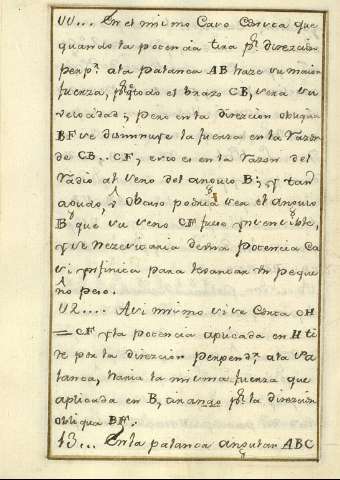 11... En el mismo Caso Consta que
quando la potencia tira pʳ direzcion
perpʳ. ala palanca AB haze su maior
fuerza, todo el brazo CB, sera su
velocidad; pero en la direzcion obliqua
BF se disminuye la fuerza en la razon
de CB.. CF, esto es en la razon del
radio al seno del angulo B; y tan
agudo, ò obtuso podria ser el angulo
B que su seno CF fuese ynsensible,
y se nezesitaria de una potencia Ca
si ynfinita para levantar un peque
ño peso.
12.... Asi mismo si se Corta CH
= CF y la potencia aplicada en H ti
re por la direzcion perpendʳ. ala pa
lanca, haria la misma fuerza que
aplicada en B, pʳ la direzcion
obliqua BF.
13... En la palanca angular ABC